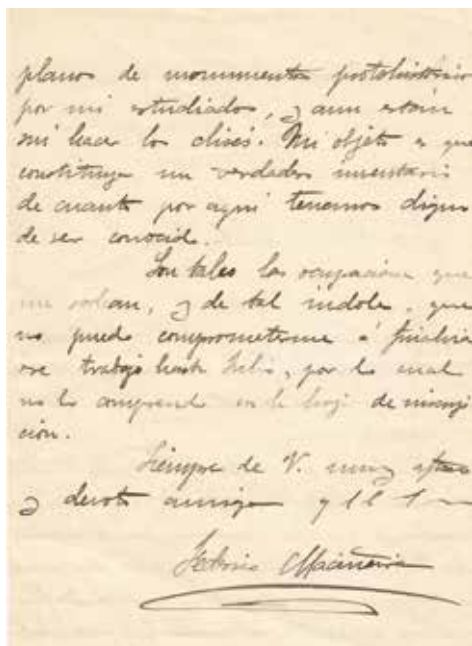 planos de monumentos protohistóricos
por mi estudiados, y aun están
sin hacer los clisés. Mi objeto es que
constituya un verdadero inventario
de cuanto por aquí tenemos digno
de ser conocido.
Son tales las ocupaciones que
me rodean, y de tal índole, que
no puedo comprometerme á finalizar
ese trabajo hasta Julio, por lo cual
no lo comprendo en la hoja de inscrip
ción.
Siempre de V. muy afmo
y devoto amigo y
Federico Maciñeira